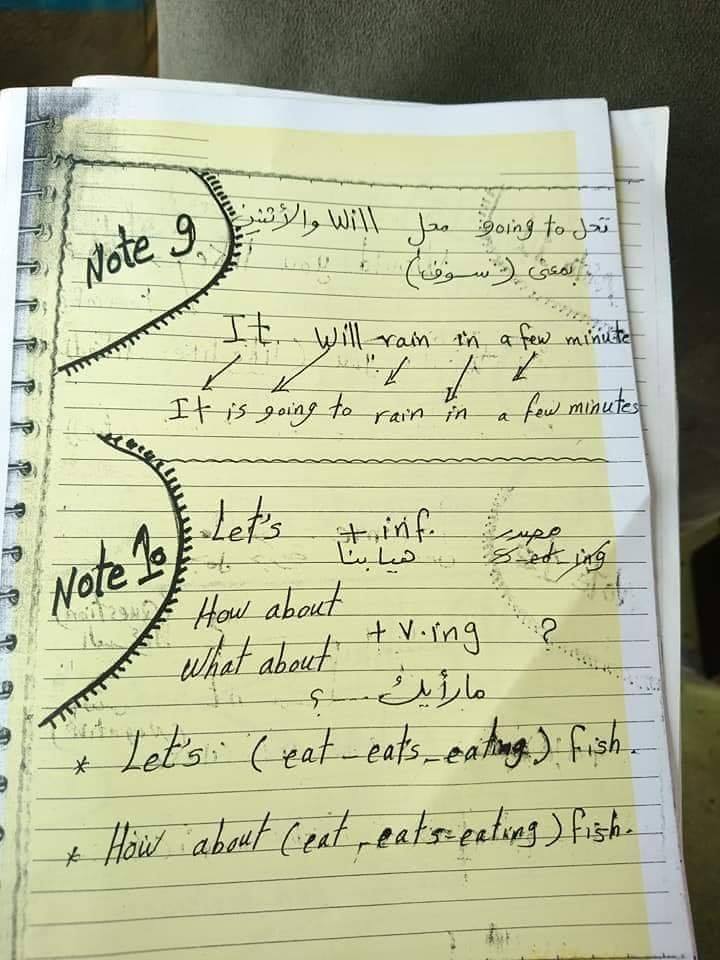 Note 9
تحل going to محل Will والأثنين
بمعنى (سوف)
It will rain in a few minute
It is going to rain in a few minutes
Note 10
Let's + inf. مصدر
هيا بنا s-ed-ing
How about
What about + V.ing ?
ما رأيك ....؟
* Let's (eat - eats - eating) fish.
* How about (eat, eats-eating) fish.